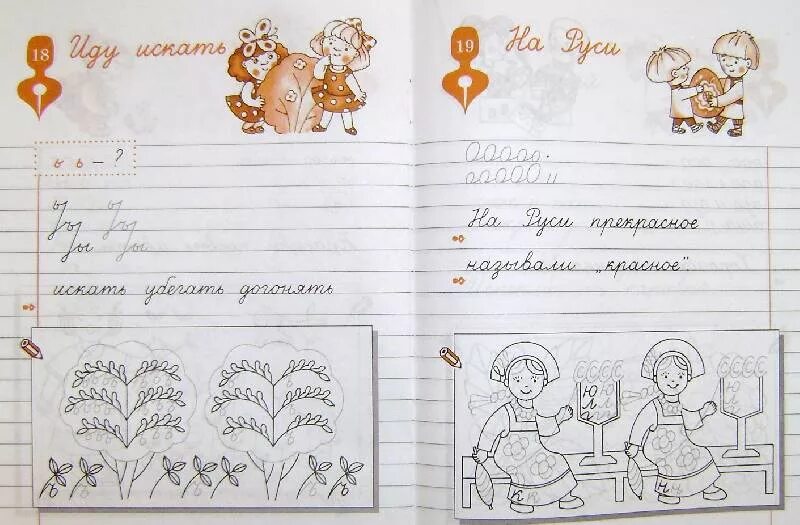 18 Иду искать
ъ ь – ?
искать убегать догонять
19 На Руси
На Руси прекрасное
называли „красное".
СССС СССС
Ю Ю Ю
Л Л Л
к к н н